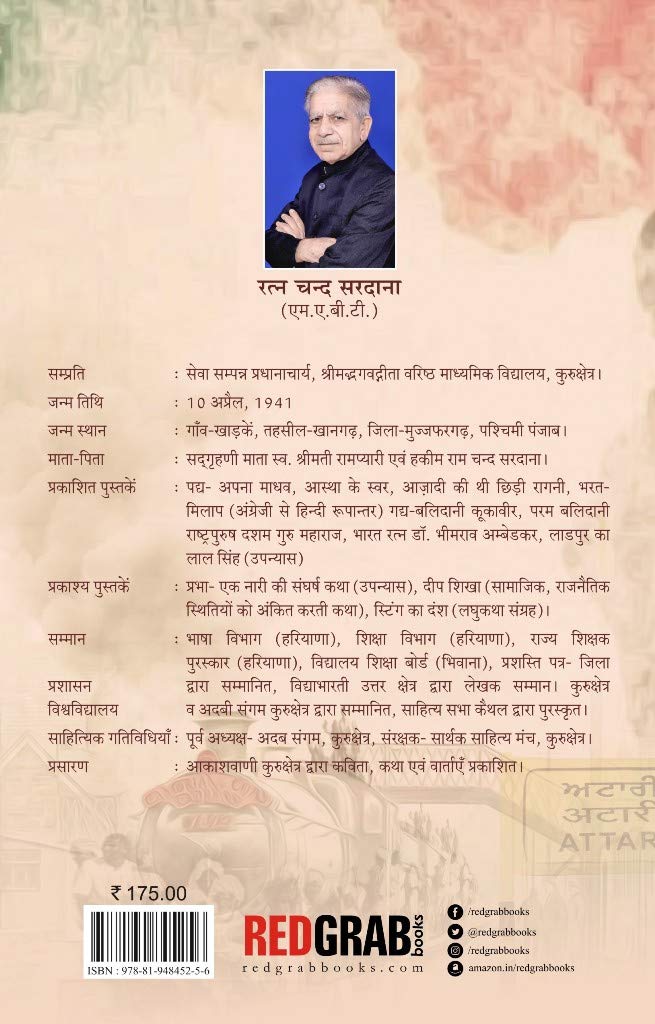 रत्न चन्द सरदाना
(एम.ए.बी.टी.)
सम्प्रति : सेवा सम्पन्न प्रधानाचार्य, श्रीमद्भगवद्गीता वरिष्ठ माध्यमिक विद्यालय, कुरुक्षेत्र।
जन्म तिथि : 10 अप्रैल, 1941
जन्म स्थान : गाँव-खाड़कें, तहसील-खानगढ़, जिला-मुज्जफरगढ़, पश्चिमी पंजाब।
माता-पिता : सद्गृहणी माता स्व. श्रीमती रामप्यारी एवं हकीम राम चन्द सरदाना।
प्रकाशित पुस्तकें : पद्य- अपना माधव, आस्था के स्वर, आज़ादी की थी छिड़ी रागनी, भरत-
मिलाप (अंग्रेजी से हिन्दी रूपान्तर) गद्य-बलिदानी कूकावीर, परम बलिदानी
राष्ट्रपुरुष दशम गुरु महाराज, भारत रत्न डॉ. भीमराव अम्बेडकर, लाडपुर का
लाल सिंह (उपन्यास)
प्रकाश्य पुस्तकें : प्रभा- एक नारी की संघर्ष कथा (उपन्यास), दीप शिखा (सामाजिक, राजनैतिक
स्थितियों को अंकित करती कथा), स्टिंग का दंश (लघुकथा संग्रह)।
सम्मान : भाषा विभाग (हरियाणा), शिक्षा विभाग (हरियाणा), राज्य शिक्षक
पुरस्कार (हरियाणा), विद्यालय शिक्षा बोर्ड (भिवाना), प्रशस्ति पत्र- जिला
प्रशासन द्वारा सम्मानित, विद्याभारती उत्तर क्षेत्र द्वारा लेखक सम्मान। कुरुक्षेत्र
विश्वविद्यालय व अदबी संगम कुरुक्षेत्र द्वारा सम्मानित, साहित्य सभा कैथल द्वारा पुरस्कृत।
साहित्यिक गतिविधियाँ : पूर्व अध्यक्ष- अदब संगम, कुरुक्षेत्र, संरक्षक- सार्थक साहित्य मंच, कुरुक्षेत्र।
प्रसारण : आकाशवाणी कुरुक्षेत्र द्वारा कविता, कथा एवं वार्ताएँ प्रकाशित।
ਅਟਾਰੀ
अटारी
ATTAR
₹ 175.00
ISBN : 978-81-948452-5-6
REDGRAB books
redgrabbooks.com
/redgrabbooks
@redgrabbooks
/redgrabbooks
amazon.in/redgrabbooks